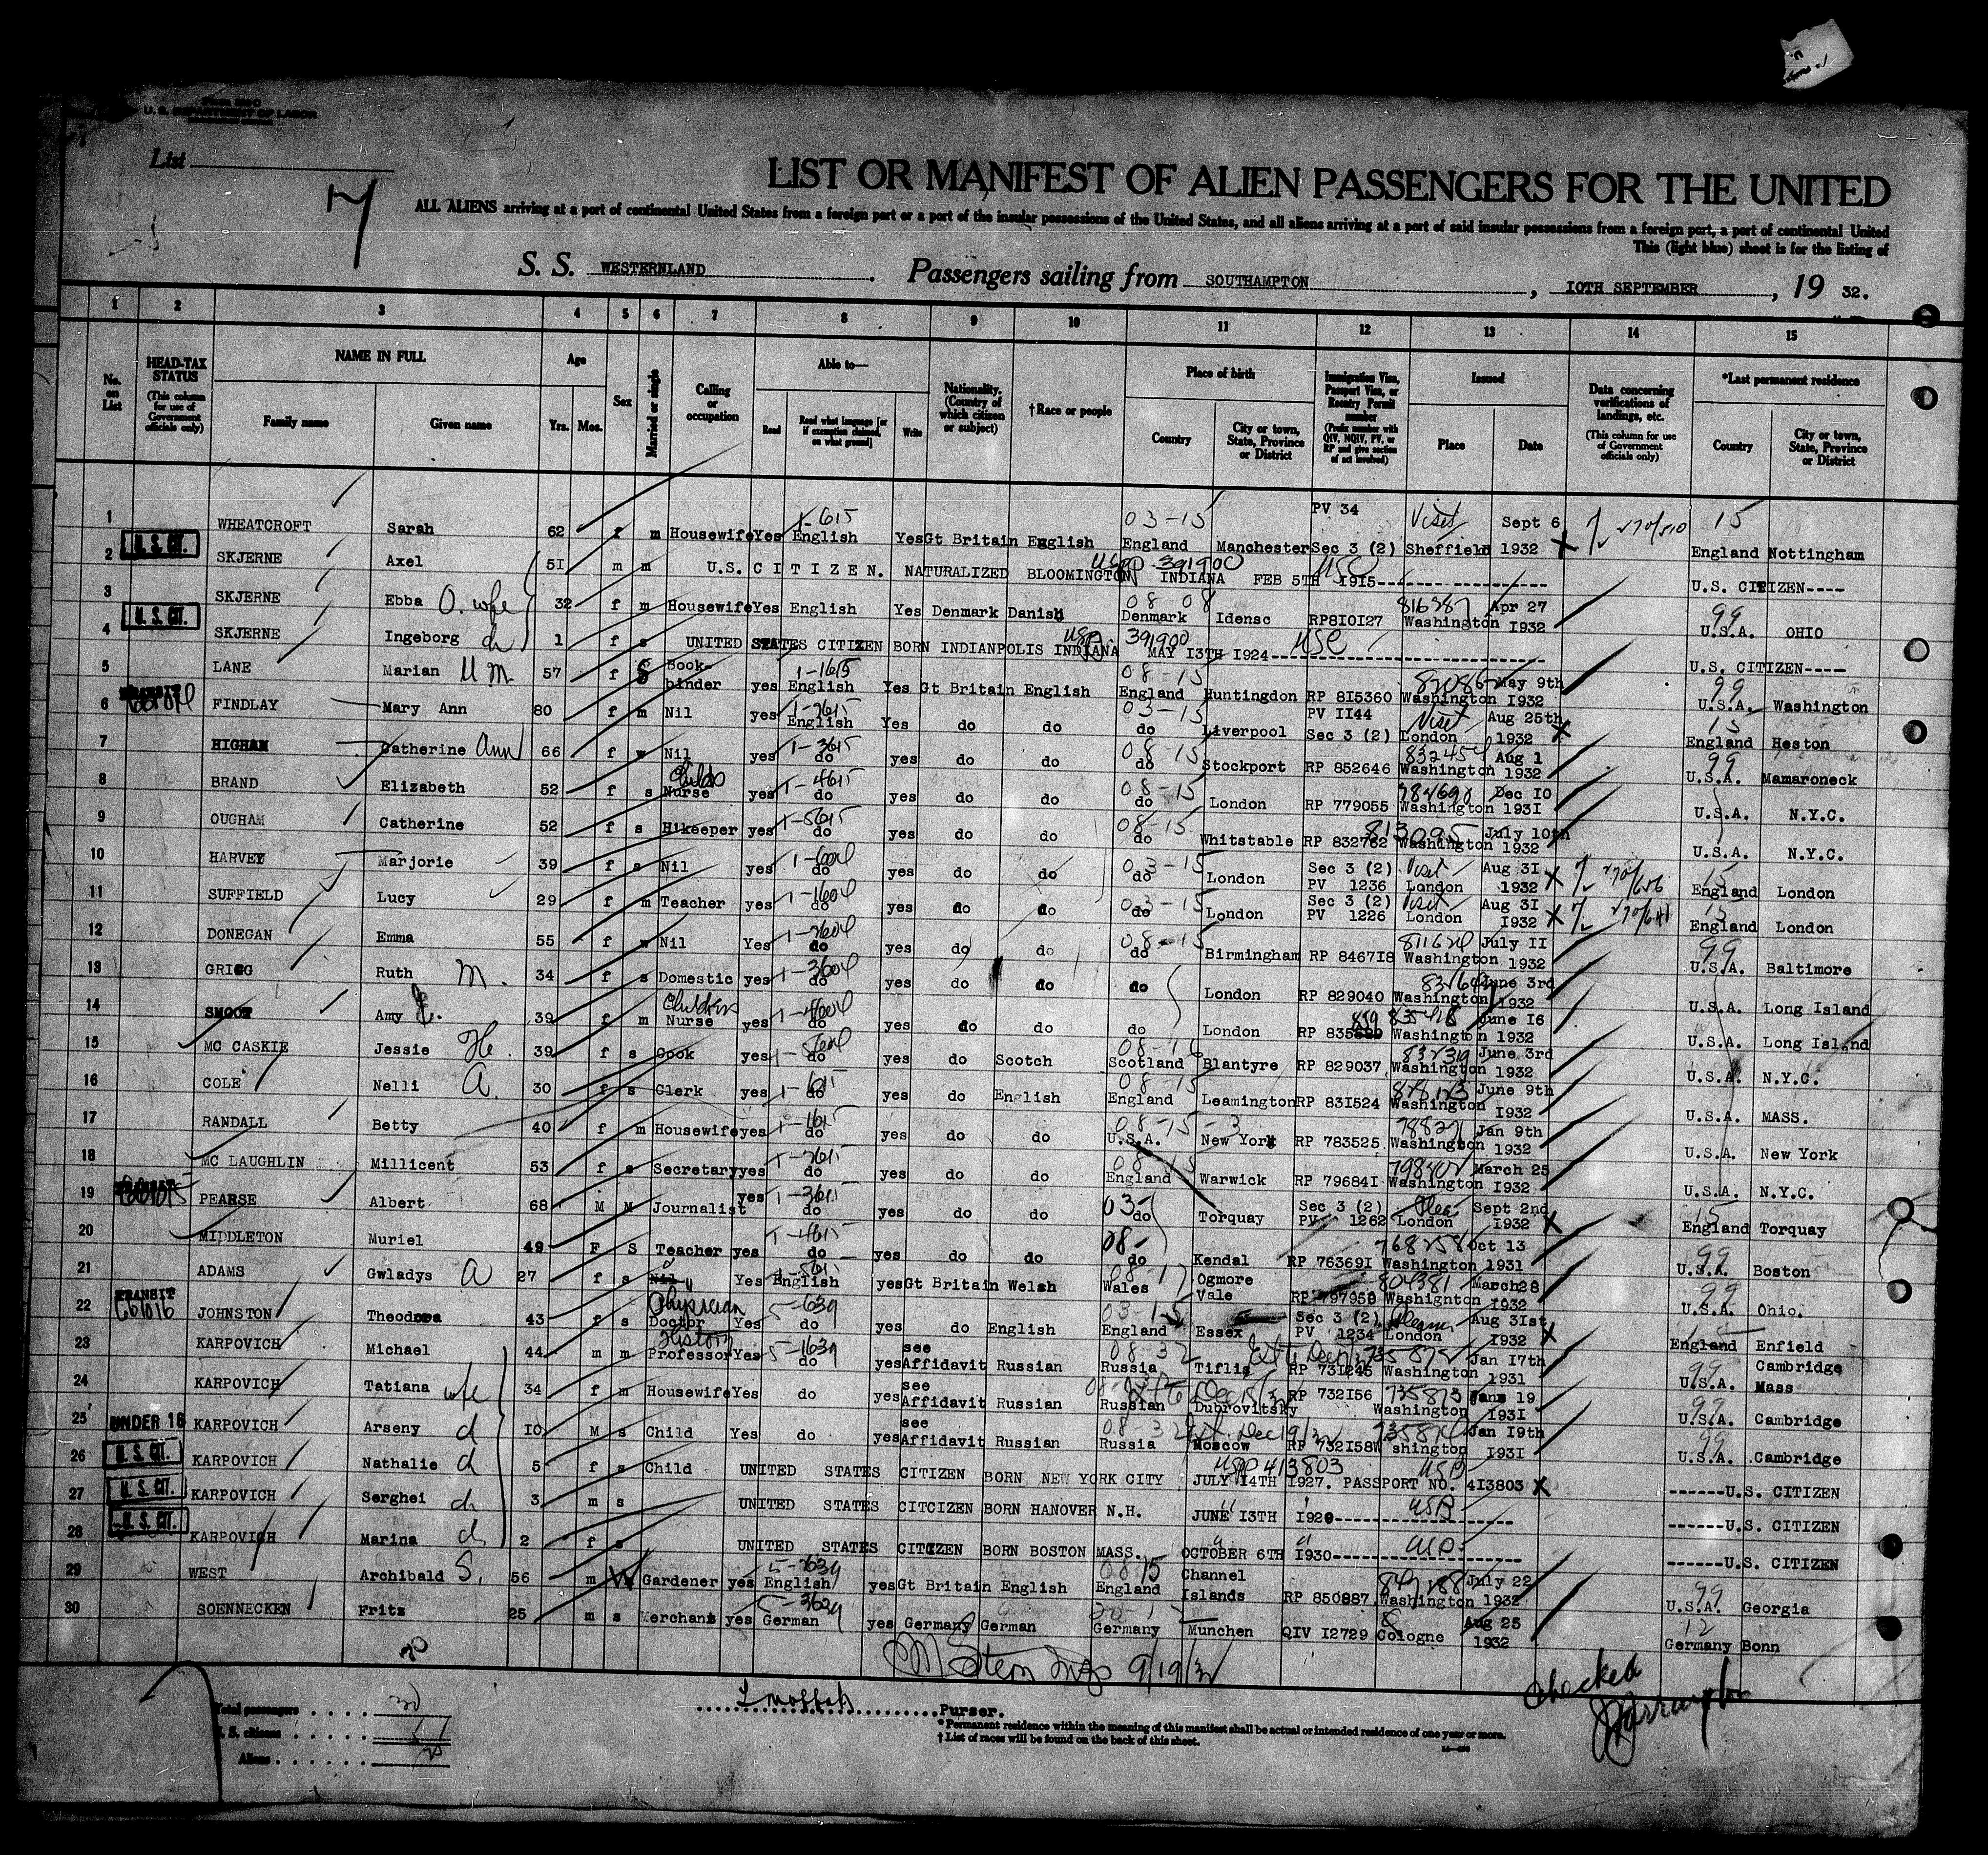 U. S. DEPARTMENT OF LABOR
List
LIST OR MANIFEST OF ALIEN PASSENGERS FOR THE UNITED
ALL ALIENS arriving at a port of continental United States from a foreign port or a port of the insular possessions of the United States, and all aliens arriving at a port of said insular possessions from a foreign port, a port of continental United
This (light blue) sheet is for the listing of
S. S. WESTERNLAND Passengers sailing from SOUTHAMPTON, 10TH SEPTEMBER, 19 32.
1 2 3 4 5 6 7 8 9 10 11 12 13 14 15
No. on List
HEAD-TAX STATUS (This column for use of Government officials only)
NAME IN FULL Family name Given name
Age Yrs. Mos.
Sex
Married or single
Calling or occupation
Able to— Read Read what language [or if exemption claimed, on what ground] Write
Nationality. (Country of which citizen or subject)
†Race or people
Place of birth Country City or town, State, Province or District
Immigration Visa, Passport Visa, or Reentry Permit number (Prefix number with QIV, NQIV, PV, or RP and give section of act involved)
Issued Place Date
Data concerning verifications of landings, etc. (This column for use of Government officials only)
*Last permanent residence Country City or town, State, Province or District
1 WHEATCROFT Sarah 62 f m Housewife Yes 1-615 English Yes Gt Britain English 03-15 England Manchester PV 34 Sec 3 (2) Visit Sheffield Sept 6 1932 X 15 England Nottingham
2 U.S. CIT. SKJERNE Axel 51 m m U.S. CITIZEN. NATURALIZED BLOOMINGTON INDIANA FEB 5TH 1915 391900 USC U.S. CITIZEN----
3 SKJERNE Ebba O. wfe 32 f m Housewife Yes English Yes Denmark Danish 08-08 Denmark Idensc RP810127 816387 Washington Apr 27 1932 99 U.S.A. OHIO
4 U.S. CIT. SKJERNE Ingeborg ch 1 f s UNITED STATES CITIZEN BORN INDIANPOLIS INDIANA MAY 13TH 1924 391900 USC U.S. CITIZEN----
5 LANE Marian U M. 57 f S Book-binder yes 1-1615 English Yes Gt Britain English 08-15 England Huntingdon RP 815360 Washington May 9th 1932 99 U.S.A. Washington
6 FINDLAY Mary Ann 80 f m Nil yes 1-2615 English Yes do do 03-15 do Liverpool PV 1144 Sec 3 (2) Visit London Aug 25th 1932 X 15 England Heston
7 HIGHAM Catherine Ann 66 f w Nil yes 1-3615 do yes do do 08-15 do Stockport RP 852646 Washington Aug 1 1932 99 U.S.A. Mamaroneck
8 BRAND Elizabeth 52 f s Childs Nurse yes 1-4615 do yes do do 08-15 do London RP 779055 Washington Dec 10 1931 U.S.A. N.Y.C.
9 OUGHAM Catherine 52 f s H'keeper yes 1-5615 do yes do do 08-15 do Whitstable RP 832762 813095 Washington July 10th 1932 U.S.A. N.Y.C.
10 HARVEY Marjorie 39 f s Nil yes do yes do do 03-15 do London Sec 3 (2) PV 1236 Visit London Aug 31 1932 X 15 England London
11 SUFFIELD Lucy 29 f m Teacher yes do yes do do 03-15 do London Sec 3 (2) PV 1226 Visit London Aug 31 1932 X 15 England London
12 DONEGAN Emma 55 f w Nil Yes do yes do do 08-15 do Birmingham RP 846718 Washington July 11 1932 99 U.S.A. Baltimore
13 GRIGG Ruth M. 34 f s Domestic yes do yes do do do London RP 829040 Washington June 3rd 1932 U.S.A. Long Island
14 SMOOT Amy E. 39 f m Childrens Nurse yes do yes do do do London Washington June 16 1932 U.S.A. Long Island
15 MC CASKIE Jessie He. 39 f s Cook yes do yes do Scotch Scotland Blantyre RP 829037 Washington June 3rd 1932 U.S.A. N.Y.C.
16 COLE Nelli A. 30 f s Clerk yes 1-615 do yes do English 08-15 England Leamington RP 831524 Washington June 9th 1932 U.S.A. MASS.
17 RANDALL Betty 40 f m Housewife yes 1-1615 do yes do do 08-15 U.S.A. New York RP 783525 Washington Jan 9th 1932 U.S.A. New York
18 MC LAUGHLIN Millicent 53 f s Secretary yes 1-2615 do yes do do 08-15 England Warwick RP 796841 Washington March 25 1932 U.S.A. N.Y.C.
19 PEARSE Albert 68 M M Journalist yes 1-3615 do yes do do 03- do Torquay Sec 3 (2) PV 1262 London Sept 2nd 1932 X 15 England Torquay
20 MIDDLETON Muriel 49 F S Teacher yes 1-4615 do yes do do 08- do Kendal RP 763691 768258 Washington Oct 13 1931 99 U.S.A. Boston
21 ADAMS Gwladys A 27 f s Nil Yes English yes Gt Britain Welsh Wales Ogmore Vale RP 797959 804381 Washignton March28 1932 99 U.S.A. Ohio.
22 TRANSIT JOHNSTON Theodora 43 f s Physician Doctor Yes 5-639 do yes do English 03-15 England Essex Sec 3 (2) PV 1234 London Aug 31st 1932 X England Enfield
23 KARPOVICH Michael 44 m m History Professor Yes 5-1639 do yes see Affidavit Russian 08-32 Russia Tiflis RP 731245 Washington Jan 17th 1931 99 U.S.A. Cambridge Mass
24 KARPOVICH Tatiana wfe 34 f m Housewife Yes do yes see Affidavit Russian Russian Dubrovitsky RP 732156 735873 Washington Jans 19 1931 99 U.S.A. Cambridge
25 UNDER 16 KARPOVICH Arseny d 10 M s Child Yes do yes see Affidavit Russian Russia Moscow RP 732158 W shington Jan 19th 1931 99 U.S.A. Cambridge
26 U.S. CIT. KARPOVICH Nathalie d 5 f s Child UNITED STATES CITIZEN BORN NEW YORK CITY JULY 14TH 1927. PASSPORT NO. 413803 X USB ------U.S. CITIZEN
27 U.S. CIT. KARPOVICH Serghei ch 3 m s UNITED STATES CITCIZEN BORN HANOVER N.H. JUNE 13TH 1929 USB ------U.S. CITIZEN
28 U.S. CIT. KARPOVICH Marina d 2 f s UNITED STATES CITIZEN BORN BOSTON MASS. OCTOBER 6TH 1930 ------U.S. CITIZEN
29 WEST Archibald S. 56 m W Gardener yes 5-2639 English yes Gt Britain English 08-15 England Channel Islands RP 850887 Washington July 22 1932 99 U.S.A. Georgia
30 SOENNECKEN Fritz 25 m s Merchant yes German yes Germany German Germany Munchen QIV 12729 Cologne Aug 25 1932 12 Germany Bonn
9/19/32
Checked
Total passengers
U. S. citizens
Aliens
Purser.
* Permanent residence within the meaning of this manifest shall be actual or intended residence of one year or more.
† List of races will be found on the back of this sheet.